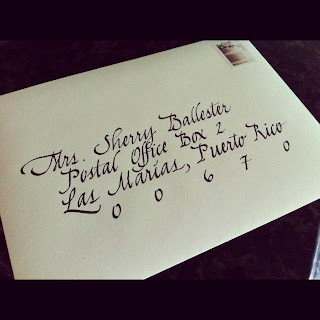 Mrs. Sherry Ballester
Postal Office Box 2
Las Marías, Puerto Rico
0 0 6 7 0